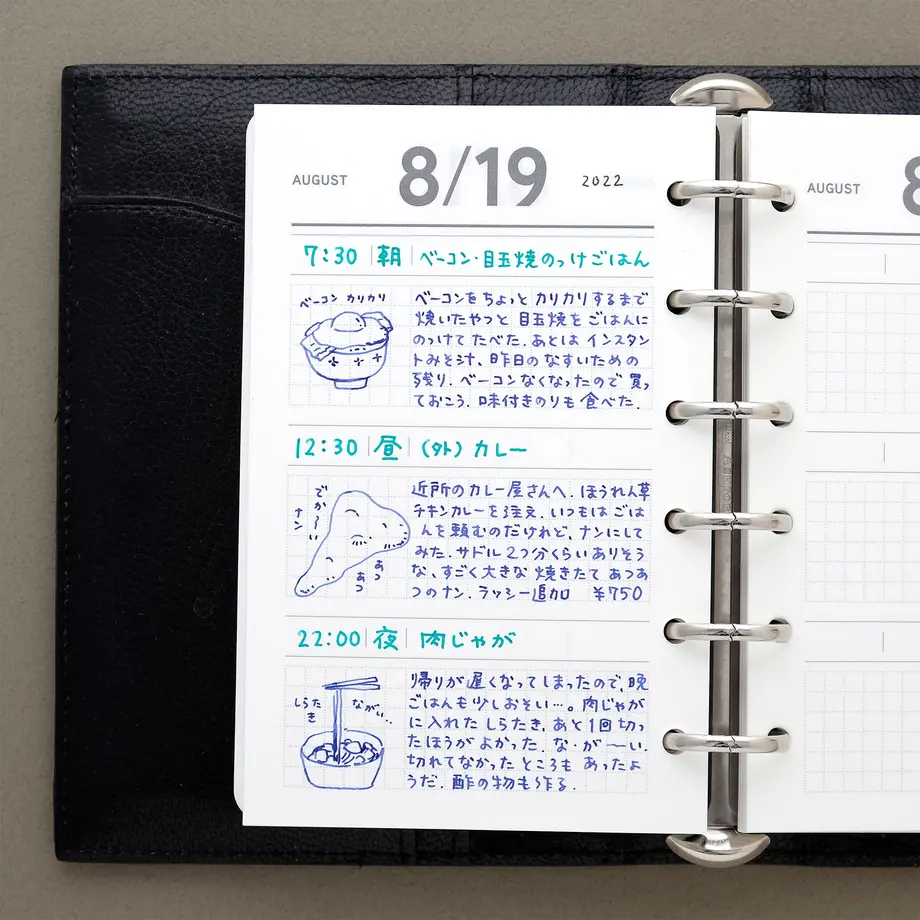 AUGUST 8/19 2022
7:30 朝 ベーコン・目玉焼のっけごはん
ベーコン カリカリ
ベーコンをちょっと カリカリするまで
焼いたやつと 目玉焼を ごはんに
のっけて たべた. あとは インスタン
トみそ汁、昨日の なすいための
残り. ベーコンなくなったので 買っ
ておこう. 味付きのりも 食べた.
12:30 昼 (外) カレー
でか〜い!!
ナン
あつ
あつ
近所のカレー屋さんへ. ほうれん草
チキンカレーを注文. いつもは ごは
んを頼むのだけれど、ナンにして
みた. サドル 2つ分くらい ありそう
な、すごく大きな 焼きたて あつあ
つのナン. ラッシー追加 ¥750
22:00 夜 肉じゃが
しらた
き
ながい…
帰りが 遅くなって しまったので、晩
ごはんも少しおそい…。肉じゃが
に入れた しらたき、あと1回 切っ
たほうが よかった. な・が〜い.
切れてなかった ところも あったよ
うだ. 酢の物も作る.
AUGUST 8